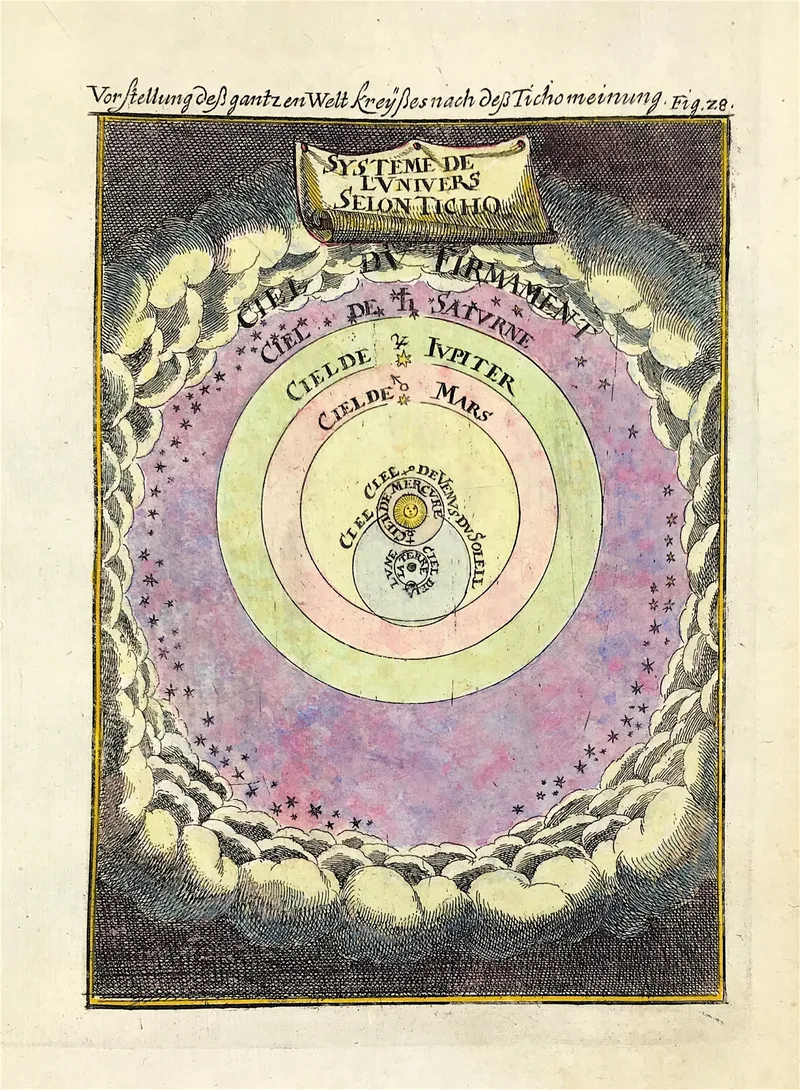 Vorstellung deß gantzen Welt kreÿßes nach deß Ticho meinung. Fig. 28.
SYSTEME DE
LVNIVERS
SELON TICHO
CIEL DV FIRMAMENT
CIEL DE ♄ SATVRNE
CIEL DE ♃ IVPITER
CIEL DE ♂ MARS
CIEL DE VENVS
CIEL DE MERCVRE
CIEL DV SOLEIL
CIEL DE LA LVNE
TERRE